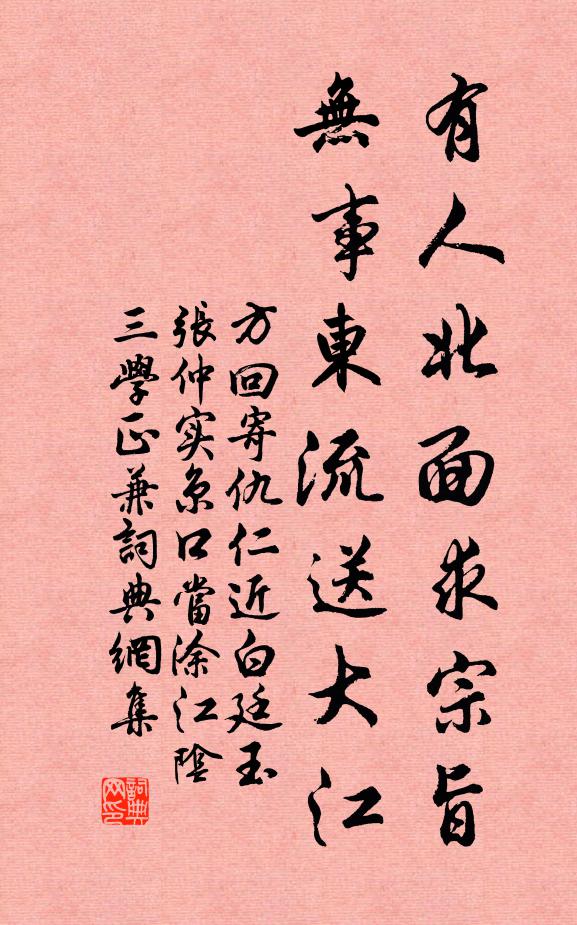 有人北面求宗旨
無事東流送大江
方回寄仇仁近白廷玉
張仲实京口當涂江陰
三學正兼詞典網集
詞典网印